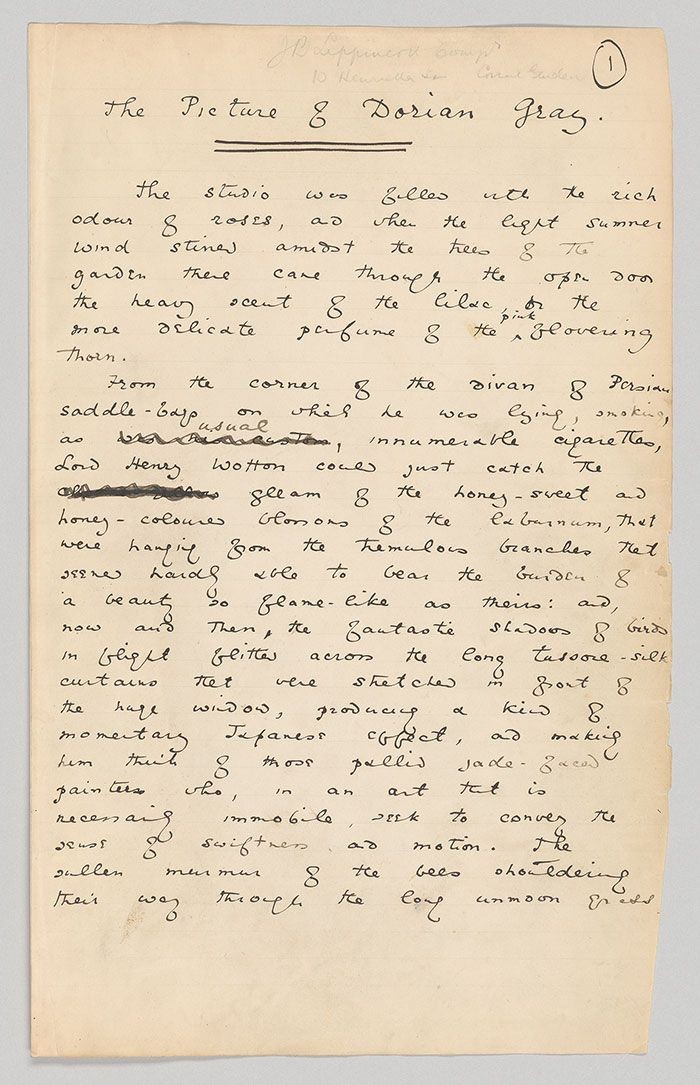 J B Lippincott Compy
10 Henrietta St Covent Garden
1
The Picture of Dorian Gray.
The studio was filled with the rich
odour of roses, and when the light summer
wind stirred amidst the trees of the
garden there came through the open door
the heavy scent of the lilac, or the
more delicate perfume of the pink flowering
thorn.
From the corner of the divan of Persian
saddle-bags on which he was lying, smoking,
as usual, innumerable cigarettes,
Lord Henry Wotton could just catch the
gleam of the honey-sweet and
honey-coloured blossoms of the laburnum, that
were hanging from the tremulous branches that
seemed hardly able to bear the burden of
a beauty so flame-like as theirs: and,
now and then, the fantastic shadows of birds
in flight flitted across the long tussore-silk
curtains that were stretched in front of
the huge window, producing a kind of
momentary Japanese effect, and making
him think of those pallid jade-faced
painters who, in an art that is
necessarily immobile, seek to convey the
sense of swiftness and motion. The
sullen murmur of the bees shouldering
their way through the long unmown grass